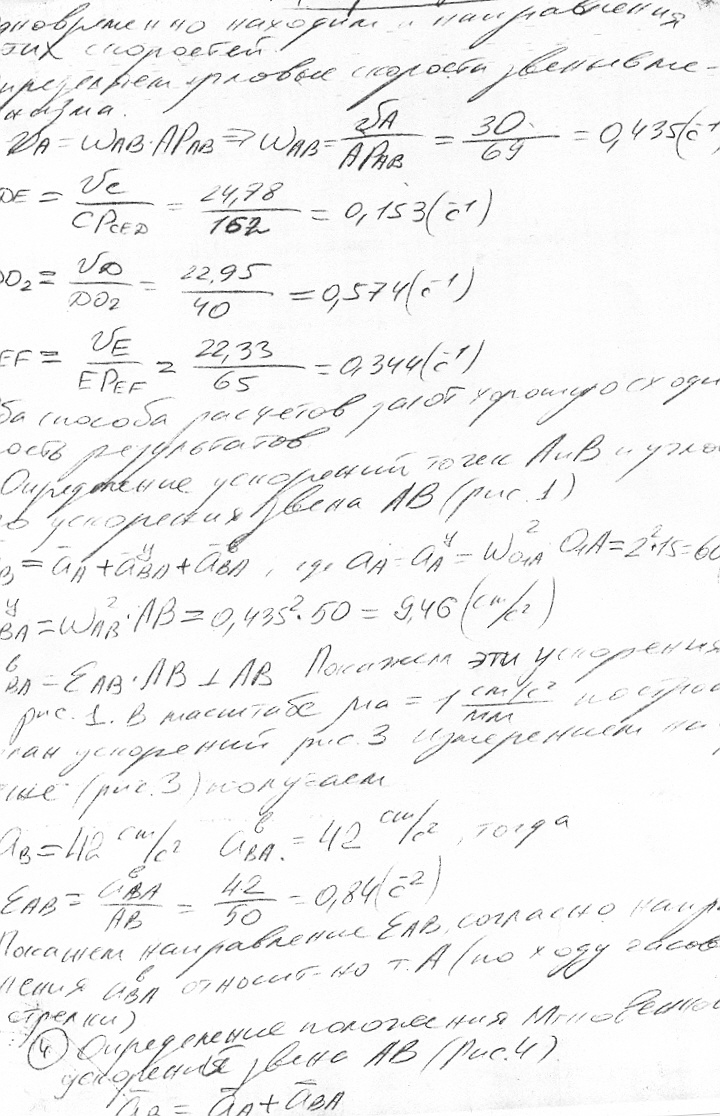 дновременно находим и направления
тих скоростей.
пределяем угловые скорости звеньев ме-
низма.
VA = ωAB·APAB ⇒ ωAB = VA/APAB = 30/69 = 0,435(c⁻¹)
DE = VC/CPCED = 24,78/162 = 0,153(c⁻¹)
DO2 = VD/DO2 = 22,95/40 = 0,574(c⁻¹)
EF = VE/EPEF = 22,33/65 = 0,344(c⁻¹)
ба способа расчетов дают хорошую сходи
ость результатов
Определение ускорений точек A и B и угло
го ускорения звена AB (рис. 1)
B = āA + āᵘBA + āᵇBA, где aA = aᵘA = ω²O1A O1A = 2²·15 = 60
ᵘBA = ω²AB·AB = 0,435²·50 = 9,46 (cm/c²)
ᵇBA = εAB·AB ⊥ AB Покажем эти ускорения
рис. 1. В масштабе μa = 1 cm/c²/мм построи
лан ускорений рис. 3 Измерением на
(рис. 3) получаем
aB = 42 cm/c² aᵇBA = 42 cm/c², тогда
εAB = aᵇBA/AB = 42/50 = 0,84(c⁻²)
Покажем направление εAB, согласно напра
ления aᵇBA относит-но т. A (по ходу часов
стрелки)
④ Определение положения Мгновенно
ускорений звена AB (Рис. 4).
āB = āA + āBA